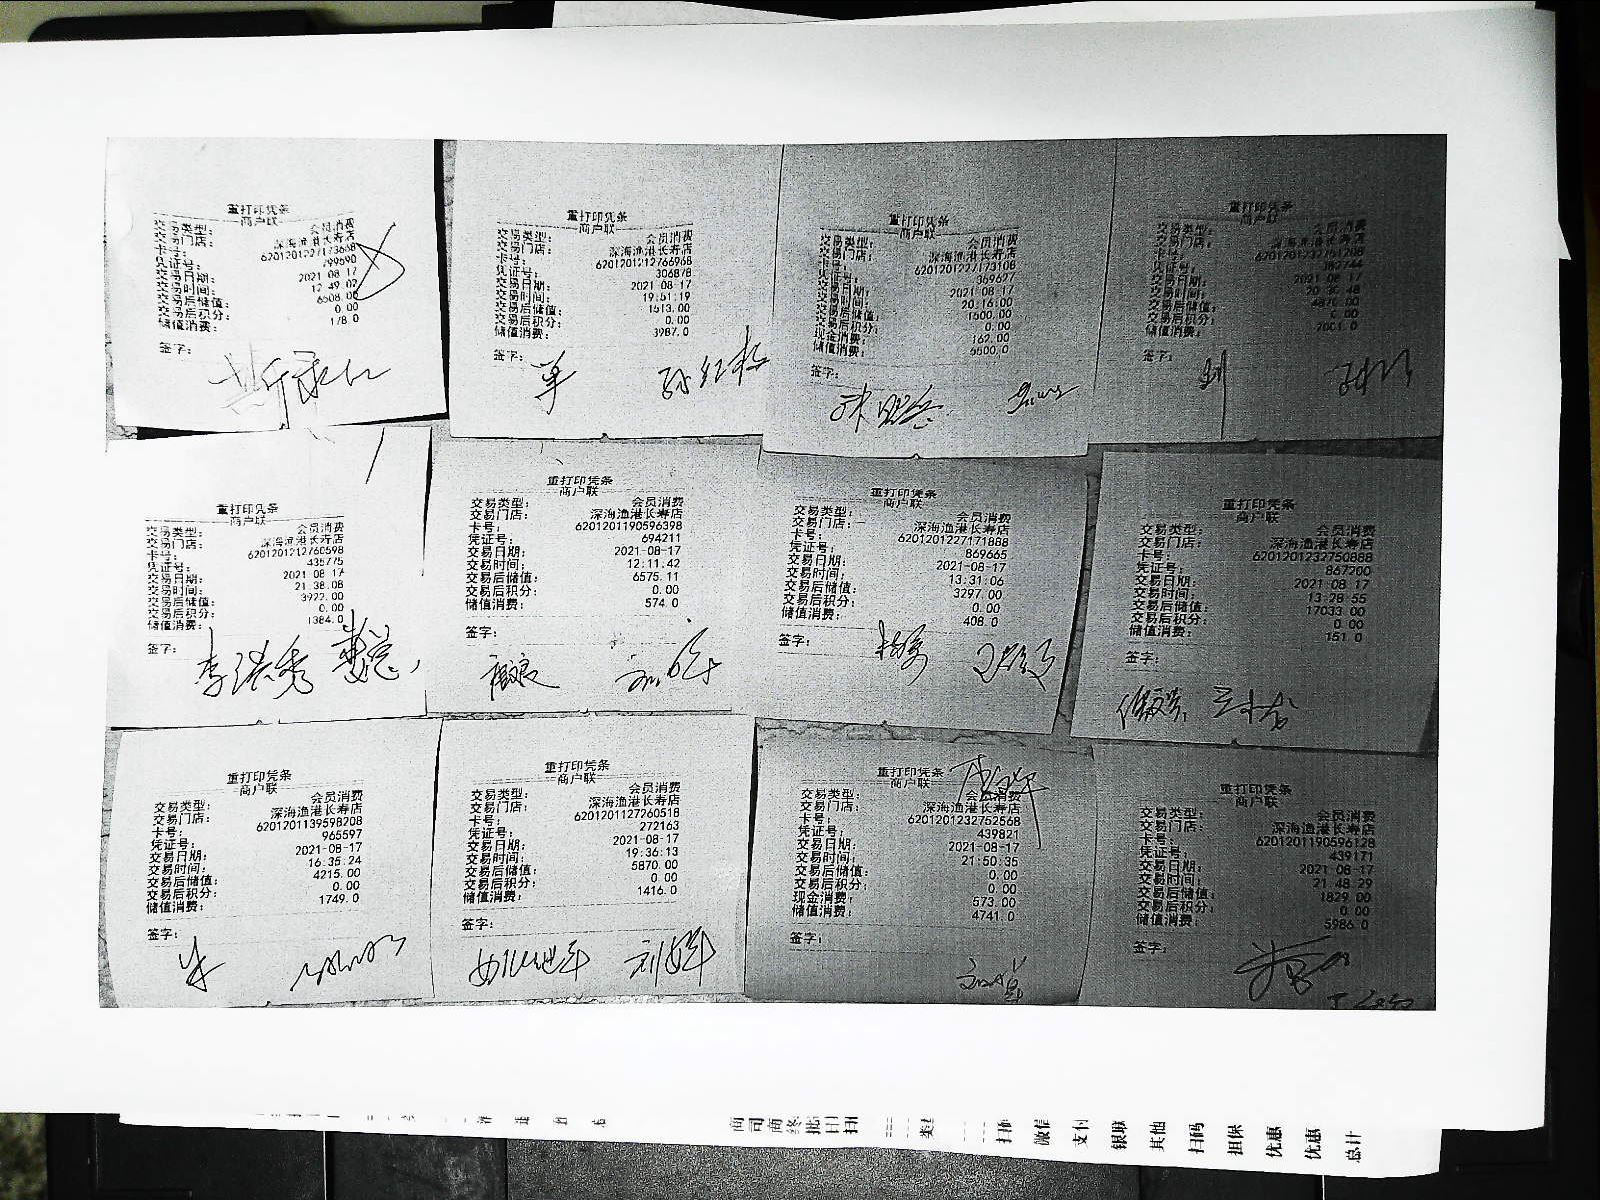 重打印凭条
商户联
交易类型： 会员消费
交易门店： 深海渔港长寿店
卡号：
凭证号： 799590
交易日期： 2021-08-17
交易时间： 12:49:02
交易后储值： 6508.00
交易后积分： 0.00
储值消费： 178.0
签字：
重打印凭条
商户联
交易类型： 会员消费
交易门店： 深海渔港长寿店
卡号： 6201201212766968
凭证号： 306878
交易日期： 2021-08-17
交易时间： 19:51:19
交易后储值： 1513.00
交易后积分： 0.00
储值消费： 3987.0
签字：
重打印凭条
商户联
交易类型： 会员消费
交易门店： 深海渔港长寿店
卡号： 6201201227173108
凭证号： 369627
交易日期： 2021-08-17
交易时间： 20:16:00
交易后储值： 1500.00
交易后积分： 0.00
现金消费： 162.00
储值消费： 5500.0
签字：
重打印凭条
商户联
交易类型： 会员消费
交易门店： 深海渔港长寿店
卡号：
凭证号： 382744
交易日期： 2021-08-17
交易时间：
交易后储值： 4870.00
交易后积分： 0.00
储值消费： 2001.0
签字：
重打印凭条
商户联
交易类型： 会员消费
交易门店： 深海渔港长寿店
卡号： 6201201212760598
凭证号： 435775
交易日期： 2021-08-17
交易时间： 21:38:08
交易后储值： 3922.00
交易后积分： 0.00
储值消费： 1384.0
签字：
李洪秀
重打印凭条
商户联
交易类型： 会员消费
交易门店： 深海渔港长寿店
卡号： 6201201190596398
凭证号： 694211
交易日期： 2021-08-17
交易时间： 12:11:42
交易后储值： 6575.11
交易后积分： 0.00
储值消费： 574.0
签字：
重打印凭条
商户联
交易类型： 会员消费
交易门店： 深海渔港长寿店
卡号： 6201201227171888
凭证号： 869665
交易日期： 2021-08-17
交易时间： 13:31:06
交易后储值： 3297.00
交易后积分： 0.00
储值消费： 408.0
签字：
重打印凭条
商户联
交易类型： 会员消费
交易门店： 深海渔港长寿店
卡号： 6201201232750888
凭证号： 867200
交易日期： 2021-08-17
交易时间： 13:28:55
交易后储值： 17033.00
交易后积分： 0.00
储值消费： 151.0
签字：
重打印凭条
商户联
交易类型： 会员消费
交易门店： 深海渔港长寿店
卡号： 6201201139598208
凭证号： 965597
交易日期： 2021-08-17
交易时间： 16:35:24
交易后储值： 4215.00
交易后积分： 0.00
储值消费： 1749.0
签字：
重打印凭条
商户联
交易类型： 会员消费
交易门店： 深海渔港长寿店
卡号： 6201201127260518
凭证号： 272163
交易日期： 2021-08-17
交易时间： 19:36:13
交易后储值： 5870.00
交易后积分： 0.00
储值消费： 1416.0
签字：
重打印凭条
商户联
交易类型： 会员消费
交易门店： 深海渔港长寿店
卡号： 6201201232752568
凭证号： 439821
交易日期： 2021-08-17
交易时间： 21:50:35
交易后储值： 0.00
交易后积分： 0.00
现金消费： 573.00
储值消费： 4741.0
签字：
重打印凭条
商户联
交易类型： 会员消费
交易门店： 深海渔港长寿店
卡号： 6201201190596128
凭证号： 439171
交易日期： 2021-08-17
交易时间： 21:48:29
交易后储值： 1829.00
交易后积分： 0.00
储值消费： 5986.0
签字：
微信
支付
银联
其他
扫码
担保
优惠
优惠
总计